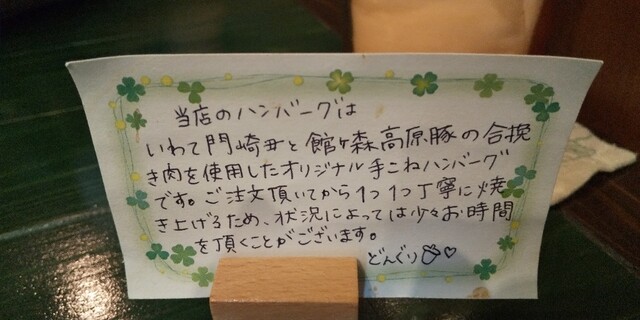 当店のハンバーグは
いわて門崎丑と館ヶ森高原豚の合挽
き肉を使用したオリジナル手こねハンバーグ
です。ご注文頂いてから1つ1つ丁寧に焼
き上げるため、状況によっては少々お時間
を頂くことがございます。
どんぐり♡